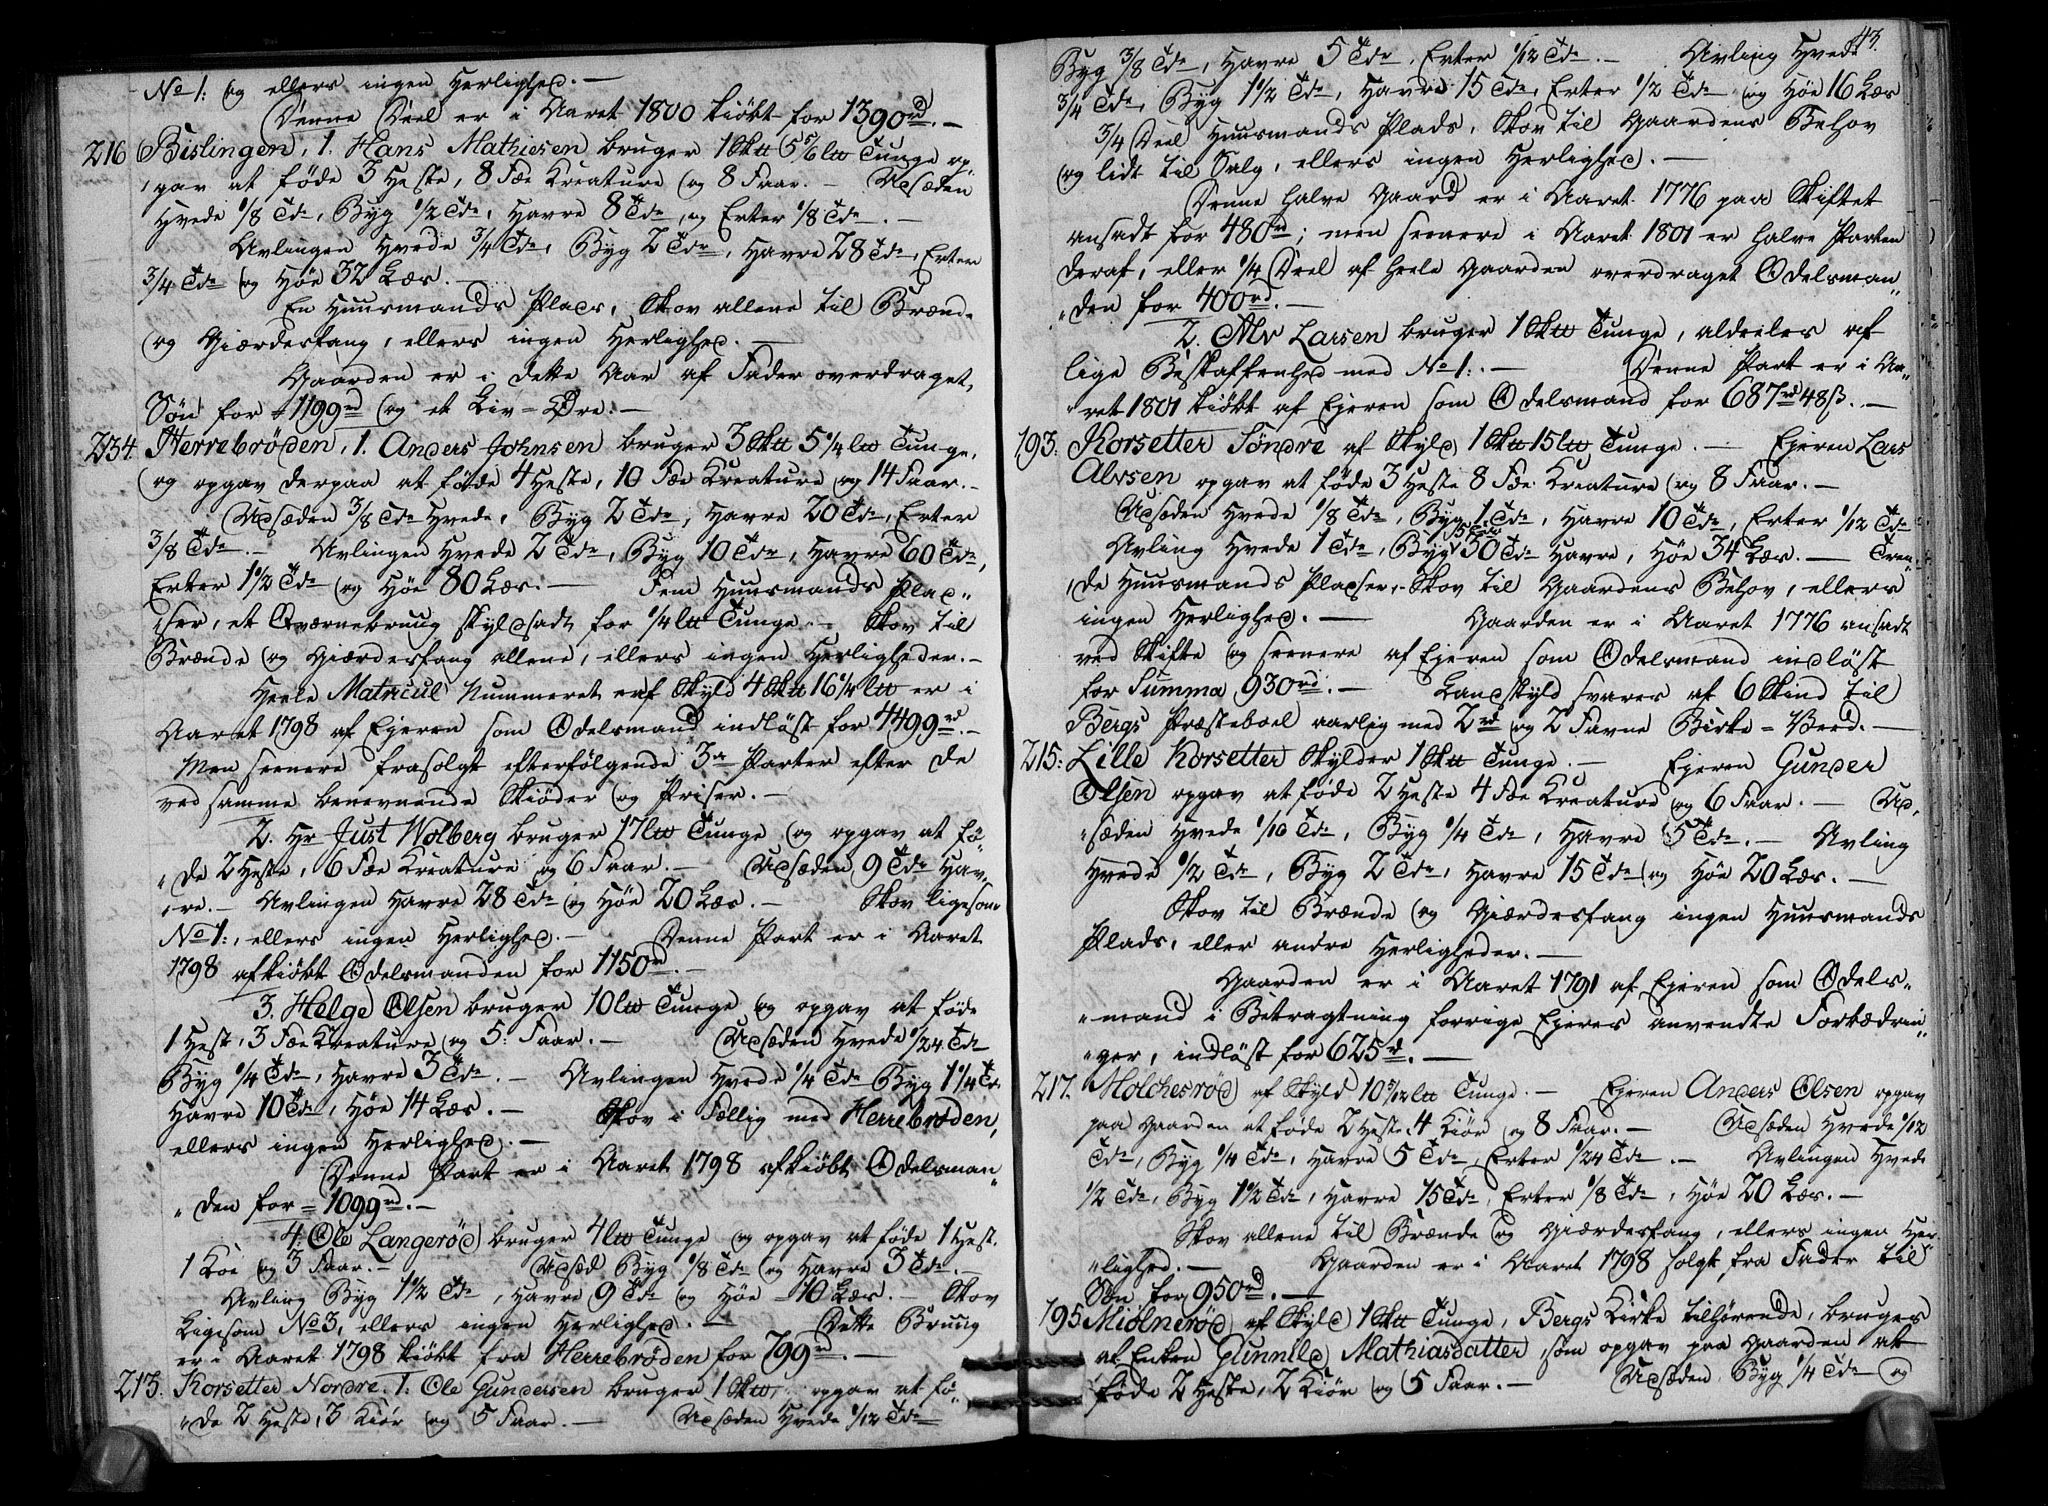 No 1: og ellers ingen Herlighed. —
Denne Deel er i Aaret 1800 kiöbt for 1390rd. —
216 Bislingen, 1. Hans Mathiesen bruger 1 Sk℔ 5 5/6 l℔ Tunge op„
„gav at föde 3 Heste, 8 Fæe Kreature og 8 Faar. — Udsæden
Hvede 1/8 Tde, Byg 1/2 Tde, Havre 8 Tde, og Erter 1/8 Tde. —
Avlingen Hvede 3/4 Tde, Byg 2 Tdr, Havre 28 Tde, Erter
3/4 Tde og Höe 32 Læs. —
En Huusmands Plads, Skov allene til Brænde
og Giærdesfang, ellers ingen Herlighed. —
Gaarden er i dette Aar af Fader overdraget
Sön for = 1199rd og et Liv = Öre. —
234. Herrebröden, 1. Anders Johnsen bruger 3 Sk℔ 5 1/4 l℔ Tunge,
og opgav derpaa at föde 4 Heste, 10 Fæe Kreature og 14 Faar. —
Udsæden 3/8 Tde Hvede, Byg 2 Tde, Havre 20 Tde, Erter
3/8 Tde. — Avlingen Hvede 2 Tde, Byg 10 Tdr, Havre 60 Tde,
Erter 1 1/2 Tde og Höe 80 Læs. — Fem Huusmands Plad„
„ser, et Qværnebruug skyldsadt for 1/4 l℔ Tunge. — Skov til
Brænde og Giærdesfang allene, ellers ingen Herligheder. —
Heele Matricul Nummeret af Skyld 4 Sk℔ 16 1/4 l℔ er i
Aaret 1798 af Ejeren som Odelsmand indlöst for 4499rd. —
Men seenere frasolgt efterfölgende 3de Parter efter de
ved samme benevnende Skiöder og Priser. —
2. Hr Just Wolberg bruger 17 l℔ Tunge og opgav at fö„
„de 2 Heste, 6 Fæe Kreature og 6 Faar. — Udsæden 9 Tde Hav„
„re. — Avlingen Havre 28 Tde og Höe 20 Læs. — Skov ligesom
No 1:, ellers ingen Herlighed. — Denne Part er i Aaret
1798 afkiöbt Odelsmanden for 1150rd. —
3. Helge Olsen bruger 10 l℔ Tunge og opgav at föde
1 Hest, 3 Fæe Kreature og 5: Faar. — Udsæden Hvede 1/24 Tde
Byg 1/4 Tde, Havre 3 Tde. — Avlingen Hvede 1/4 Tde Byg 1 1/4 Tde
Havre 10 Tde, Höe 14 Læs. — Skov i Fællig med Herrebröden,
ellers ingen Herlighed. —
Denne Part er i Aaret 1798 afkiöbt Odelsman„
„den for = 1099rd. —
4: Ole Langeröd bruger 4 l℔ Tunge og opgav at föde 1 Hest.
1 Koe og 3 Faar. — Udsæd Byg 1/8 Tde og Havre 3 Tde. —
Avling Byg 1 1/2 Tde, Havre 9 Tde og Höe = 10 Læs. — Skov
Ligesom No 3, ellers ingen Herlighed. — Dette Bruug
er i Aaret 1798 kiöbt fra Herrebröden for 799rd. —
213. Korsetter Nordre. 1: Ole Gundersen bruger 1 Sk℔, opgav at fö„
„de 2 Heste, 3 Kiör og 5 Faar. — Udsæden Hvede 1/12 Tde
43.
Byg 3/8 Tde, Havre 5 Tde, Erter 1/12 Tde. — Avling Hvede
3/4 Tde, Byg 1 1/2 Tde, Havre 15 Tde, Erter 1/2 Tde og Höe 16 Læs
3/4 Deel Huusmands Plads, Skov til Gaardens Behov
og lidt til Salg, ellers ingen Herlighed. —
Denne halve Gaard er i Aaret 1776 paa Skiftet
ansadt for 480rd; men seenere i Aaret 1801 er halve Parten
deraf, eller 1/4 Deel af heele Gaarden overdraget Odelsman„
„den for 400rd. —
2. Alv Larsen bruger 1 Sk℔ Tunge, aldeeles af
lige Beskaffenhed med No 1: — Denne Part er i Aa„
„ret 1801 kiöbt af Ejeren som Odelsmand for 687rd 48ß. —
193. Korsetter Söndre af Skyld 1 Sk℔ 15 l℔ Tunge. — Ejeren Lars
Alvsen opgav at föde 3 Heste 8 Fæe Kreature og 8 Faar. —
Udsæden Hvede 1/8 Tde, Byg 1 Tde, Havre 10 Tde, Erter 1/12 Tde
Avling Hvede 1 Tde, Byg 5 Tdr 30 Tde Havre, Höe 34 Læs. — Tven„
„de Huusmands Pladser, Skov til Gaardens Behov, ellers
ingen Herlighed. — Gaarden er i Aaret 1776 ansadt
ved Skifte og seenere af Ejeren som Odelsmand indlöst
for Summa 930rd. — Landskyld svares af 6 Skind til
Bergs Præsteboel aarlig med 2rd og 2 Favne Birke = Veed. —
215: Lille Korsetter Skylder 1 Sk℔ Tunge. — Ejeren Gunder
Olsen opgav at föde 2 Heste 4 Fæe Kreature og 6 Faar. — Ud„
„sæden Hvede 1/10 Tde, Byg 1/4 Tde, Havre 5 Tde. — Avling
Hvede 1/2 Tde, Byg 2 Tde, Havre 15 Tde og Höe 20 Læs. —
Skov til Brænde og Giærdesfang ingen Huusmands
Plads, eller andre Herligheder. —
Gaarden er i Aaret 1791 af Ejeren som Odels„
„mand i Betragtning forrige Ejeres anvendte Forbædrin„
„ger, indlöst for 625rd. —
217. Holchesröd af Skyld 10 5/12 l℔ Tunge. — Ejeren Anders Olsen opgav
paa Gaarden at föde 2 Heste 4 Kiör og 8 Faar. — Udsæden Hvede 1/12
Tde, Byg 1/4 Tde, Havre 5 Tde, Erter 1/24 Tde. — Avlingen Hvede
1/2 Tde, Byg 1 1/2 Tde, Havre 15 Tde, Erter 1/8 Tde, Höe 20 Læs. —
Skov allene til Brænde og Giærdesfang, ellers ingen Her„
„lighed. — Gaarden er i Aaret 1798 solgt fra Fader til
Sön for 950rd. —
195 Miölneröd af Skyld 1 Sk℔ Tunge, Bergs Kirke tilhörende, bruges
af Enken Gunnild Mathiasdatter, som opgav paa Gaarden at
föde 2 Heste, 2 Kiör og 5 Faar. — Udsæden Byg 1/4 Tde og